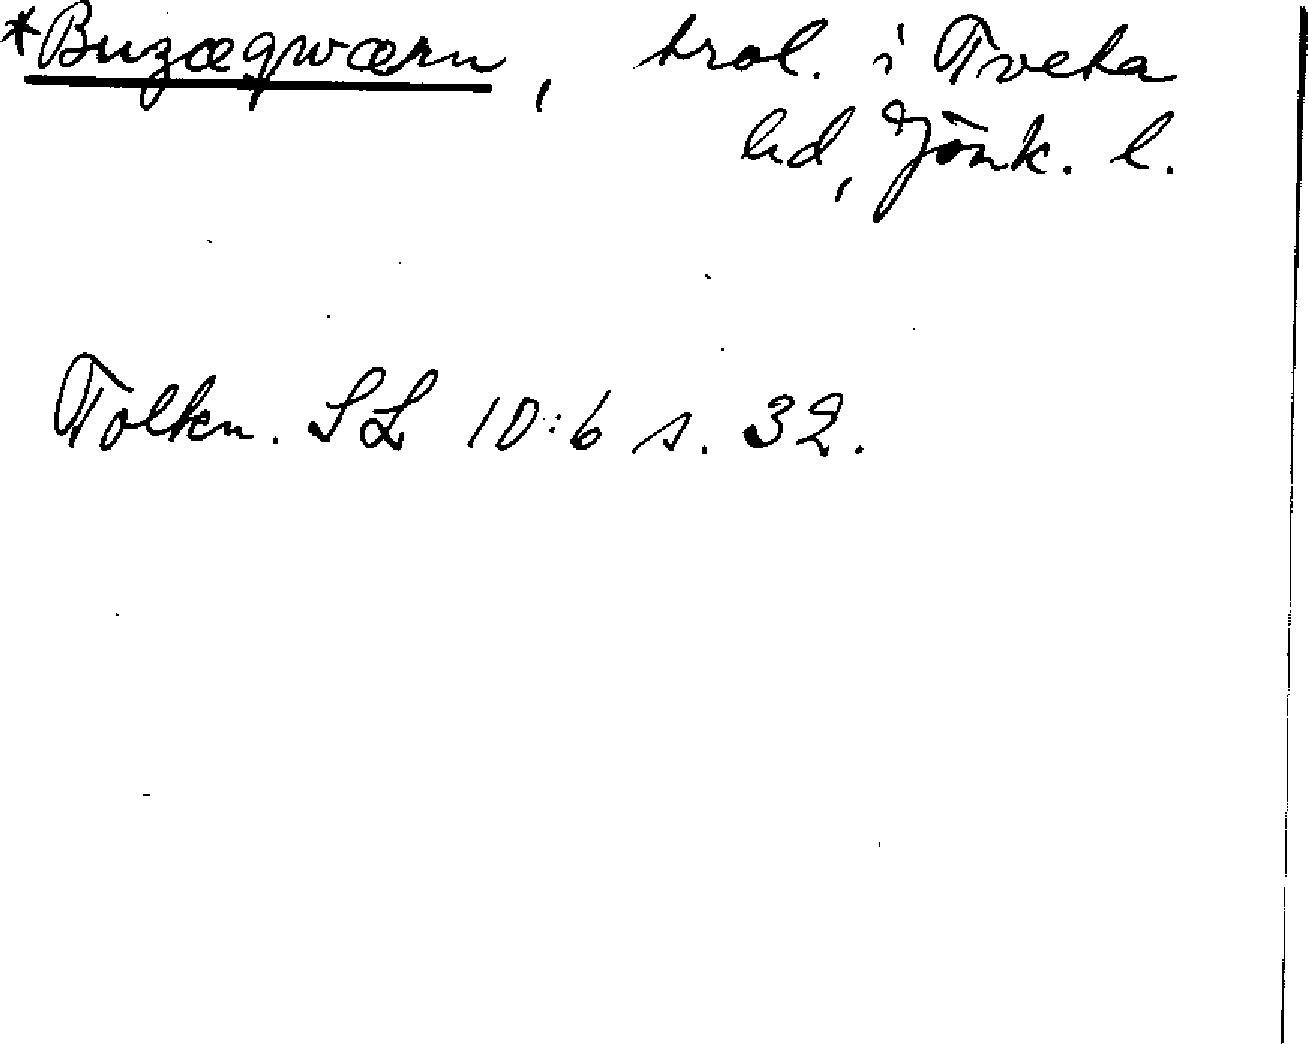 *Buzæqwærn, trol. i Tveta
hd, Jönk. l.
Tolkn. SL 10:6 s. 32.